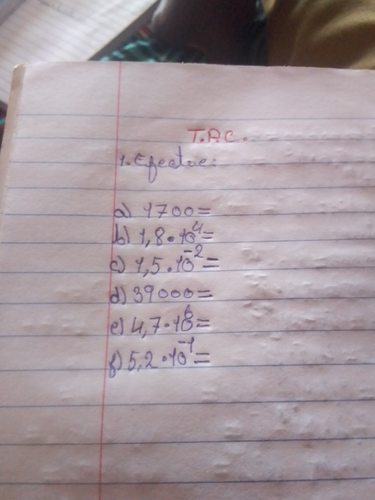 T.P.C.
1. Efectue:
a) 1700=
b) 1,8•10⁴=
c) 1,5•10⁻²=
d) 39000=
e) 4,7•10⁶=
f) 5,2•10⁻¹=